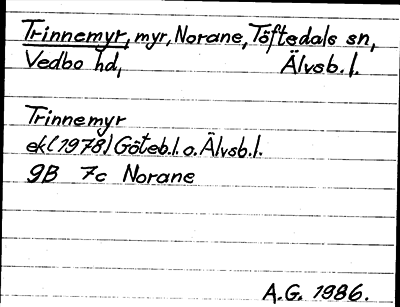 Trinnemyr, myr, Norane, Töftedals sn,
Vedbo hd, Älvsb. l.
Trinnemyr
ek(1978) Göteb. l. o. Älvsb. l.
9B 7c Norane
A.G. 1986.